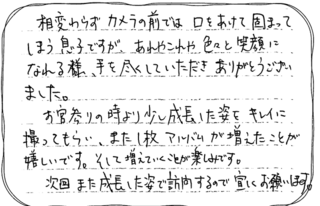 相変わらずカメラの前では口をあけて固まって
しまう息子ですが、あれやこれや色々と笑顔に
なれる様、手を尽くしていただきありがとうござい
ました。
お宮参りの時より少し成長した姿をキレイに
撮ってもらい、また1枚アルバムが増えたことが
嬉しいです。そして増えていくことが楽しみです。
次回また成長した姿で訪問するので宜しくお願いします。